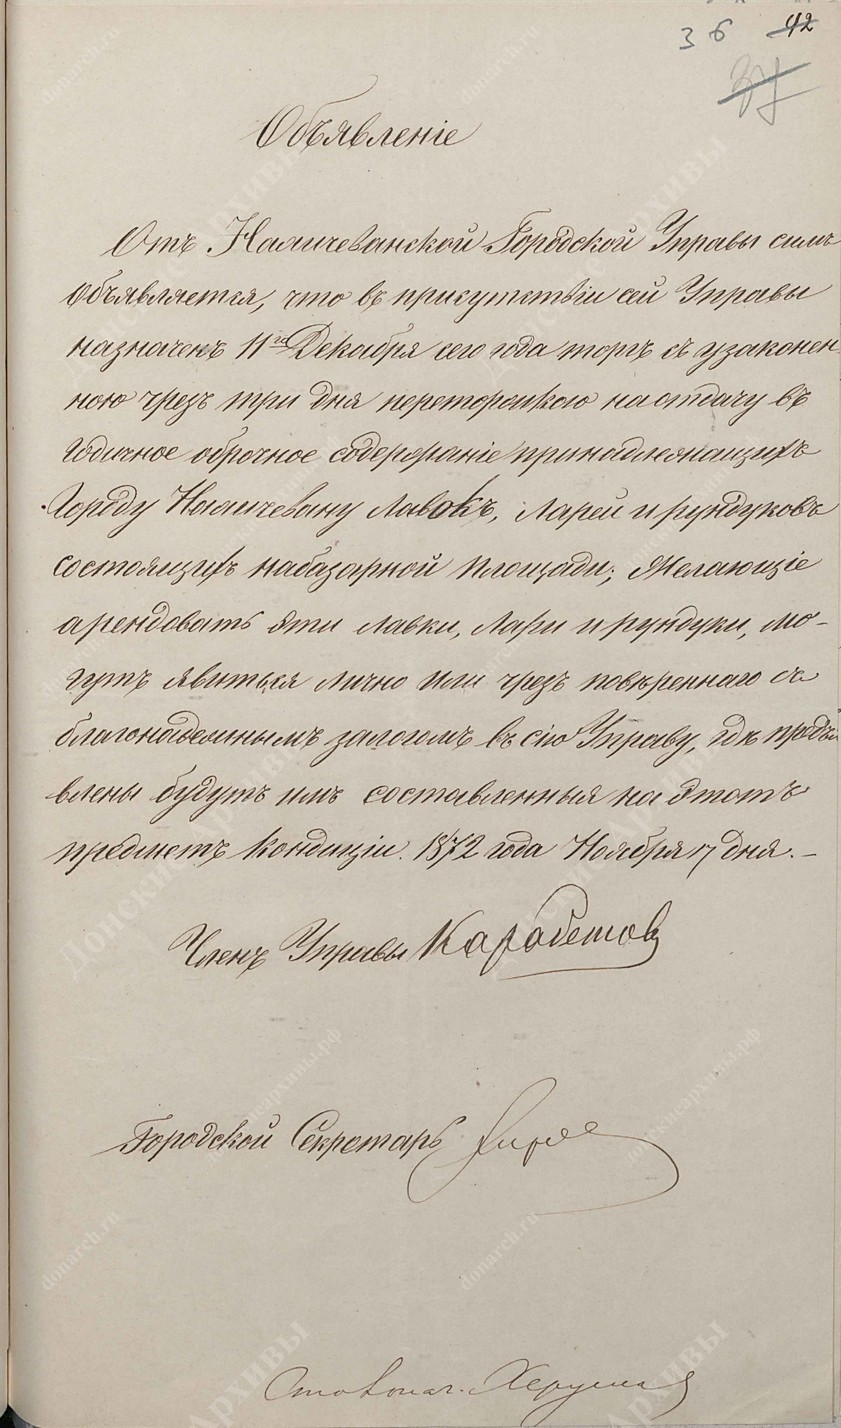 36 42
37
Объявленіе
Отъ Нахичеванской Городской Управы симъ
объявляется, что въ присутствіи сей Управы
назначенъ 11го Декабря сего года торгъ съ узаконен
ною чрезъ три дня переторжкою на отдачу въ
годичное оброчное содержаніе принадлежащихъ
Городу Нахичевану лавокъ, ларей и рундуковъ
состоящихъ на базарной площади; Желающіе
арендовать эти лавки, лари и рундуки, мо-
гутъ явиться лично или чрезъ повѣреннаго съ
благонадежнымъ залогомъ въ сію Управу, гдѣ предъя
влены будутъ имъ составленныя на этотъ
предметъ кондиціи. 1872 года Ноября 17 дня.–
Членъ Управы Карабетов
Городской Секретарь
Столонач.